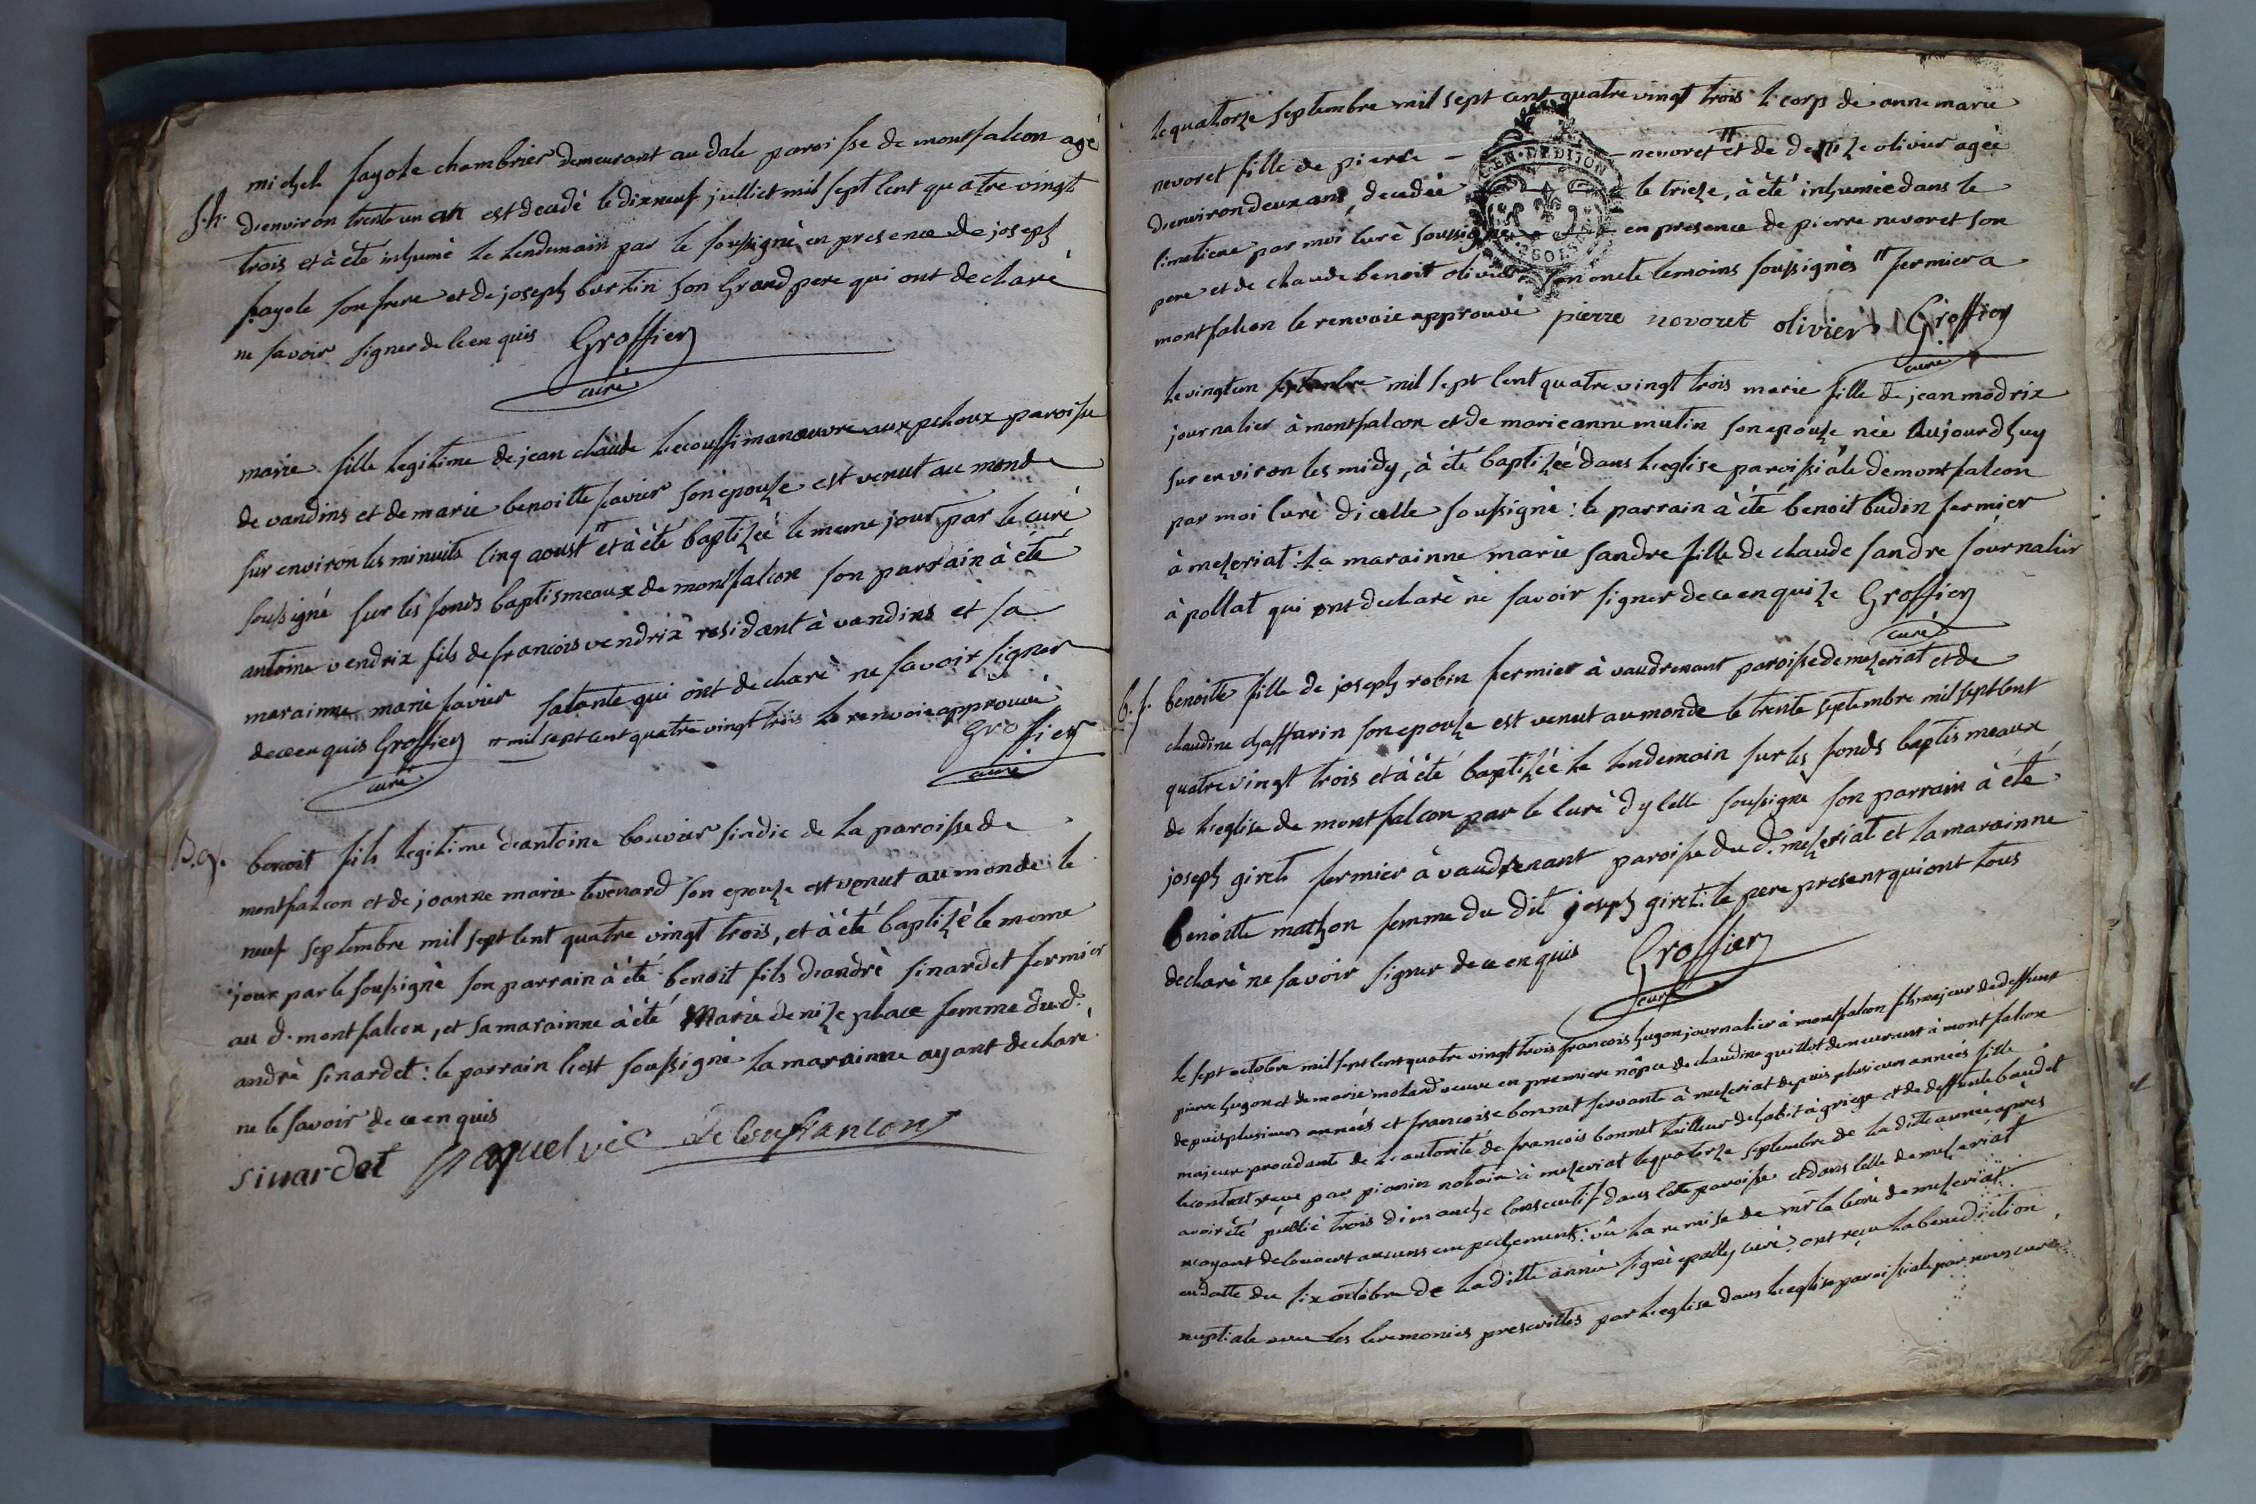 michel fayole chambrier demeurant au dale paroisse de montfalcon agé
S.h. d'environ trente un an est decudé le dixneuf julliet mil sept cent quatre vingts
trois et à été inhumé le lendemain par le soussigné en presence de joseph
fayole son frere et de joseph burtin son grand pere qui ont declaré
ne savoir signer de ce enquis Groffier
curé
marie fille legitime de jean claude lecouffi manœuvre aux peloux paroisse
de vandins et de marie benoitte favier son epouse est venut au monde
sur environ les minuits cinq aoust " et à été baptizéé le meme jour par le curé
soussigné sur les fonds baptismeaux de montfalcon son parrain à été
antoine vendrix fils de francois vendrix residant à vandins et sa
marainne marie favier sa tante qui ont declaré ne savoir signer
de ce enquis Groffier " mil sept cent quatre vingt trois le renvoie approuvé
curé Groffier
curé
B.g. benoit fils legitime d'antoine bouvier sindic de la paroisse de
montfalcon et de joanne marie tevenard son epouse est venut au monde le
neuf septembre mil sept cent quatre vingt trois, et à été baptizé le meme
jour par le soussigné son parrain à été benoit fils d'andrè sinardet fermier
au d. montfalcon, et sa marainne à été Marie denize place femme du d.
andrè sinardet: le parrain s'est soussigné la marainne ayant declaré
ne le savoir de ce enquis
sinardet
le quatorze septembre mil sept cent quatre vingt trois le corps de anne marie
nevoret fille de pierre - nevoret " et de denize olivier agée
d'environ deux ans, decudée le trieze, à été inhumée dans le
cimetiere par moi curé soussigné en presence de pierre nevoret son
pere et de claude benoit olivier son oncle temoins soussignés " fermier a
montfalcon le renvoie approuvé pierre novoret olivier Groffier
curé
GEN. DE DIJON
2 SOLS
le vingt un septembre mil sept cent quatre vingt trois marie fille de jean modrix
journalier à montfalcon et de marie anne mutin son epouse née aujourdhuy
sur environ les midy, à été baptizéé dans l'eglise paroissiale de montfalcon
par moi curé dicelle soussigné: le parrain à été benoit budin fermier
à mezeriat: la marainne marie sandre fille de claude sandre journalier
à pollat qui ont declaré ne savoir signer de ce enquize Groffier
curé
b.f. benoitte fille de joseph robin fermier à vaudrenant paroisse de mezeriat et de
claudine chaffarin son epouse est venut au monde le trente septembre mil sept cent
quatre vingt trois et à été baptizéé le lendemain sur les fonds baptismeaux
de l'eglise de montfalcon par le curé dycelle soussigné son parrain à été
joseph giret fermier à vaudrenant paroisse du d. mezeriat et la marainne
benoitte mathon femme du dit joseph giret: le pere present qui ont tous
declaré ne savoir signer de ce enquis Groffier
curé
le sept octobre mil sept cent quatre vingt trois francois hugon journalier à montfalcon fils majeur de deffunt
pierre hugon et de marie molard veuve en premiere nôpce de claudine guillot demeurant à montfalcon
depuis plusieurs annéés et francoise bonnet servante à mezeriat depuis plusieurs annéés fille
majeur procedante de l'autorité de francois bonnet tailleur dhabit à griege et de deffunte baudet
le contrat reçu par pionin notaire à mezeriat le quatorze septembre de la ditte année apres
avoir été publié trois dimanche consecutif dans cette paroisse et dans celle de mezeriat
n'ayant decouvert aucuns empechements: vû la remise de mr le curé de mezeriat
en datte du six octobre de la ditte annéé signé curé, ont reçu la benediction
nuptiale avec les ceremonies prescrittes par l'eglise dans l'eglise paroissiale par nous curé